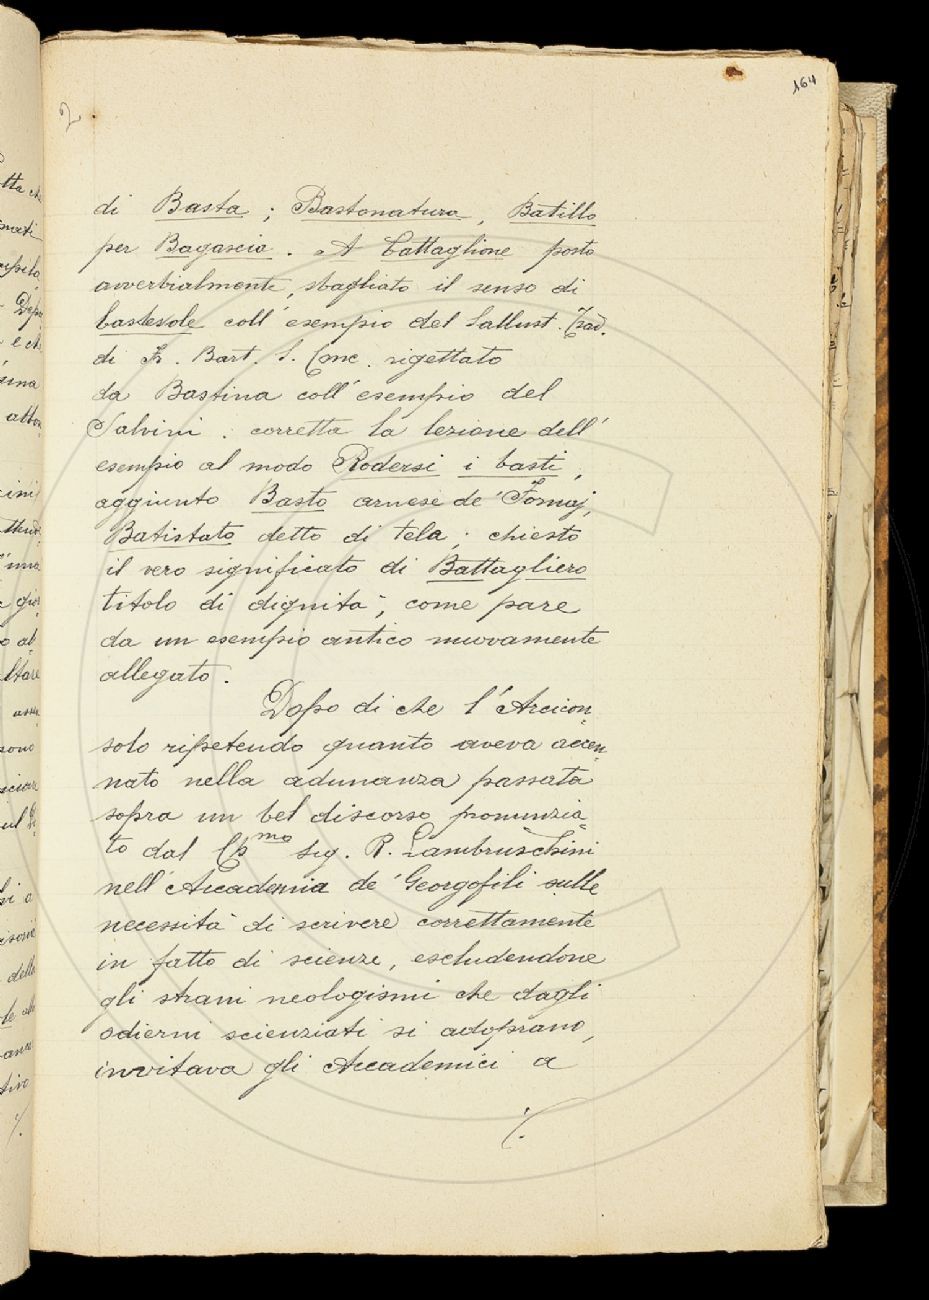 164
2
di Basta ; Bastonatura, Batillo
per Bagascia. A battaglione posto
avverbialmente, sbagliato il senso di
bastevole coll' esempio del Sallust. Grad.
di Fr. Bart. S. Conc. rigettato
da Bastina coll' esempio del
Salvini. corretta la lezione dell'
esempio al modo Rodersi i basti,
aggiunto Basto arnese de' Fornaj,
Batistato detto di tela; chiesto
il vero significato di Battagliero
titolo di dignità, come pare
da un esempio antico nuovamente
allegato.
Dopo di che l'Arcicon-
solo ripetendo quanto aveva accen-
nato nella adunanza passata
sopra un bel discorso pronunzia-
to dal Ch.mo Sig. R. Lambruschini
nell'Accademia de' Georgofili sulle
necessità di scrivere correttamente
in fatto di scienze, escludendone
gli strani neologismi che dagli
odierni scienziati si adoprano,
invitava gli Accademici a
./.